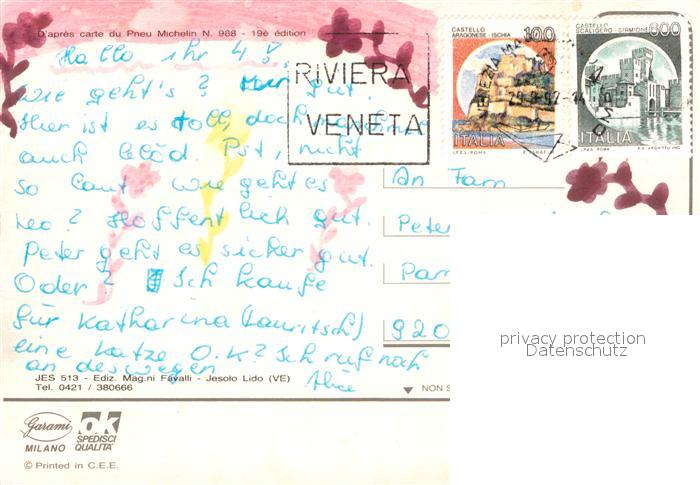 D'après carte du Pneu Michelin N. 988 - 19è édition
Hallo ihr 4!
wie geht's? Mir gut.
Hier ist es toll, doch manchmal
auch blöd. Pst, nicht
so laut wie geht es
leo? Hoffentlich gut.
Peter geht es sicker gut.
Oder? Ich kaufe
für Katharina (Lauritsch)
eine Katze O.K? Ich ruf noch
an deswegen
Alice
JES 513 - Ediz. Mag.ni Favalli - Jesolo Lido (VE)
Tel. 0421 / 380666
Garami
MILANO
ok
SPEDISCI
QUALITÀ
© Printed in C.E.E.
RIVIERA
VENETA
CASTELLO
ARAGONESE - ISCHIA
100
ITALIA
I.P.Z.S. ROMA
CASTELLO
SCALIGERO - SIRMIONE
800
ITALIA
I.P.Z.S. ROMA
An Fam
Peter
Pam
920
NON S
privacy protection
Datenschutz